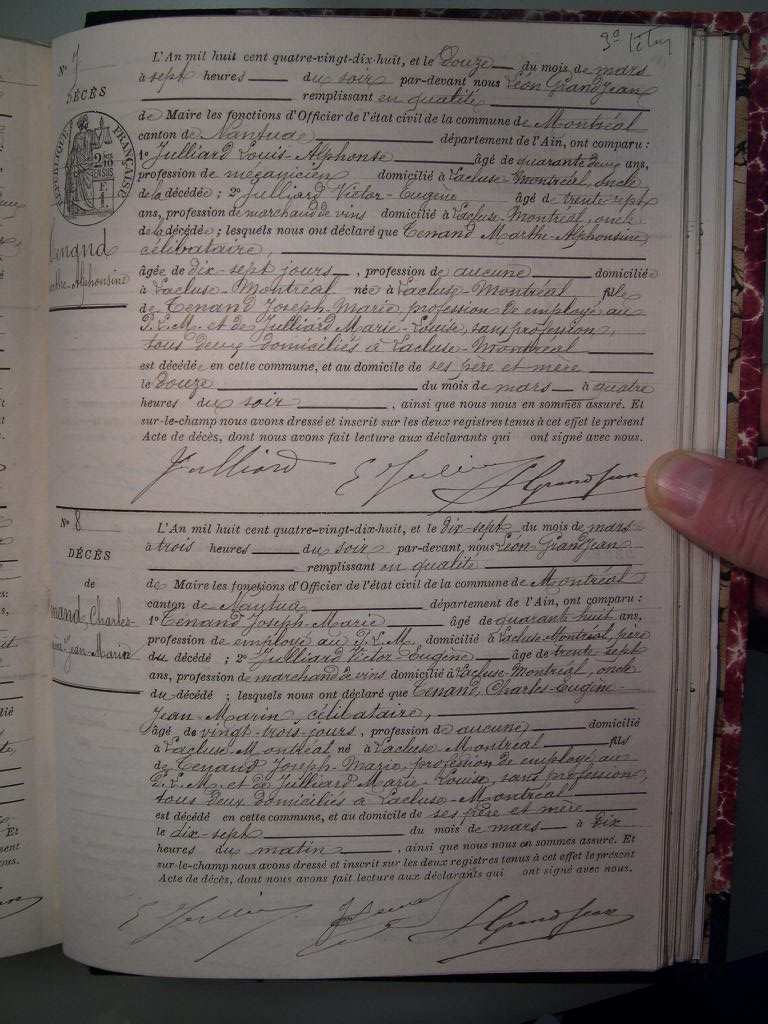 Nº 7
DÉCÈS
RÉPUBLIQUE FRANÇAISE
Tenand
Marthe-Alphonsine
L'An mil huit cent quatre-vingt-dix-huit, et le douze du mois de mars
à sept heures du soir par-devant nous Léon Grandjean
remplissant en qualité
de Maire les fonctions d'Officier de l'état civil de la commune de Montréal
canton de Nantua département de l'Ain, ont comparu :
1º Julliard Louis-Alphonse âgé de quarante deux ans,
profession de mécanicien domicilié à Lacluse-Montréal, oncle
de la décédée ; 2º Julliard Victor-Eugène âgé de trente sept
ans, profession de marchand de vins domicilié à Lacluse-Montréal, oncle
de la décédée ; lesquels nous ont déclaré que Tenand Marthe-Alphonsine,
célibataire
âgée de dix-sept jours, profession de aucune domiciliée
à Lacluse-Montréal née à Lacluse-Montréal fille
de Tenand Joseph-Marie, profession de employé au
P.L.M. et de Julliard Marie-Louise, sans profession,
tous deux domiciliés à Lacluse-Montréal
est décédée en cette commune, et au domicile de ses père et mère
le douze du mois de mars à quatre
heures du soir, ainsi que nous nous en sommes assuré. Et
sur-le-champ nous avons dressé et inscrit sur les deux registres tenus à cet effet le présent
Acte de décès, dont nous avons fait lecture aux déclarants qui ont signé avec nous.
Julliard E Julliard L Grandjean
Nº 8
DÉCÈS
de
Tenand, Charles-
Eugène-Jean-Marin
L'An mil huit cent quatre-vingt-dix-huit, et le dix-sept du mois de mars
à trois heures du soir par-devant, nous Léon Grandjean
remplissant en qualité
de Maire les fonctions d'Officier de l'état civil de la commune de Montréal
canton de Nantua département de l'Ain, ont comparu :
1º Tenand Joseph-Marie âgé de quarante huit ans,
profession de employé au P.L.M. domicilié à Lacluse-Montréal, père
du décédé ; 2º Julliard Victor-Eugène âgé de trente sept
ans, profession de marchand de vins domicilié à Lacluse-Montréal, oncle
du décédé ; lesquels nous ont déclaré que Tenand, Charles-Eugène-
Jean-Marin célibataire,
âgé de vingt-trois jours, profession de aucune domicilié
à Lacluse-Montréal né à Lacluse-Montréal fils
de Tenand Joseph-Marie, profession de employé au
P.L.M. et de Julliard Marie-Louise, sans profession,
tous deux domiciliés à Lacluse-Montréal
est décédé en cette commune, et au domicile de ses père et mère
le dix-sept du mois de mars à dix
heures du matin, ainsi que nous nous en sommes assuré. Et
sur-le-champ nous avons dressé et inscrit sur les deux registres tenus à cet effet le présent
Acte de décès, dont nous avons fait lecture aux déclarants qui ont signé avec nous.
E Julliard Tenand L Grandjean